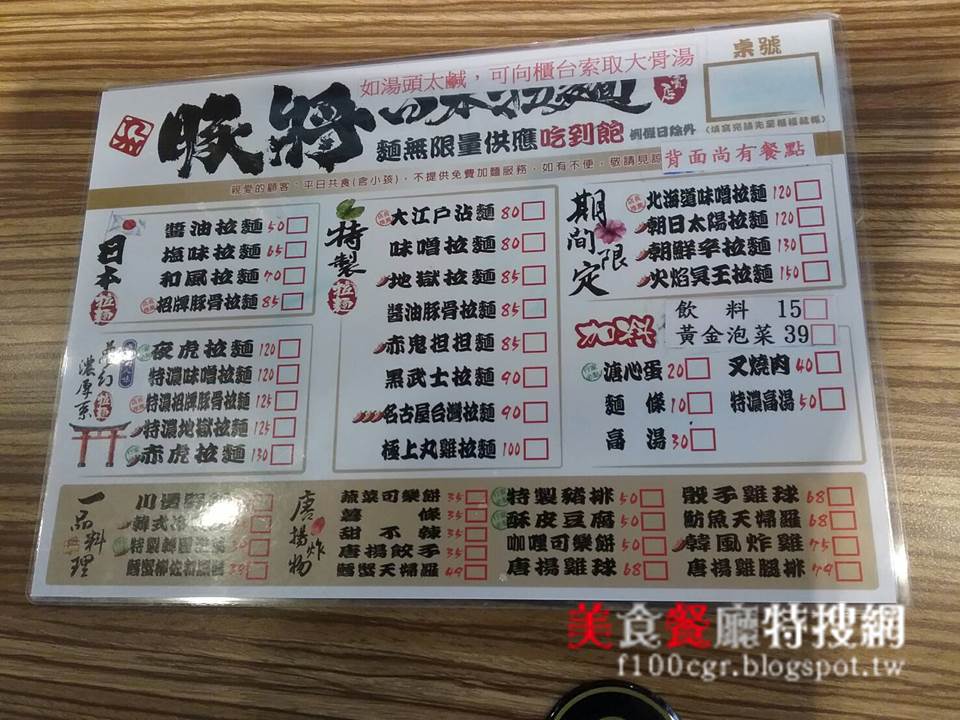 如湯頭太鹹，可向櫃台索取大骨湯
桌號
豚將
麵無限量供應吃到飽 例假日除外
(填寫完請先至櫃檯結帳)
背面尚有餐點
親愛的顧客，平日共食(含小孩)，不提供免費加麵服務，如有不便，敬請見諒
日本拉麵
醬油拉麵 50
塩味拉麵 65
和風拉麵 70
招牌豚骨拉麵 85
夢幻濃厚系拉麵
夜虎拉麵 120
特濃味噌拉麵 120
特濃招牌豚骨拉麵 125
特濃地獄拉麵 125
赤虎拉麵 130
特製拉麵
大江戶沾麵 80
味噌拉麵 80
地獄拉麵 85
醬油豚骨拉麵 85
赤鬼担担麵 85
黑武士拉麵 90
名古屋台灣拉麵 90
極上丸雞拉麵 100
期間限定
北海道味噌拉麵 120
朝日太陽拉麵 120
朝鮮辛拉麵 130
火焰冥王拉麵 150
飲料 15
黃金泡菜 39
加料
溏心蛋 20
叉燒肉 40
麵條 10
特濃高湯 50
高湯 30
一品料理
韓式冷
特製
唐揚炸物
蔬菜可樂餅 35
薯條 35
甜不辣 35
唐揚餃子 35
鱈蟹天婦羅 49
特製豬排 50
酥皮豆腐 50
咖哩可樂餅 50
唐揚雞球 68
骰子雞球 68
魴魚天婦羅 68
韓風炸雞 75
唐揚雞腿排 79
美食餐廳特搜網
f100cgr.blogspot.tw